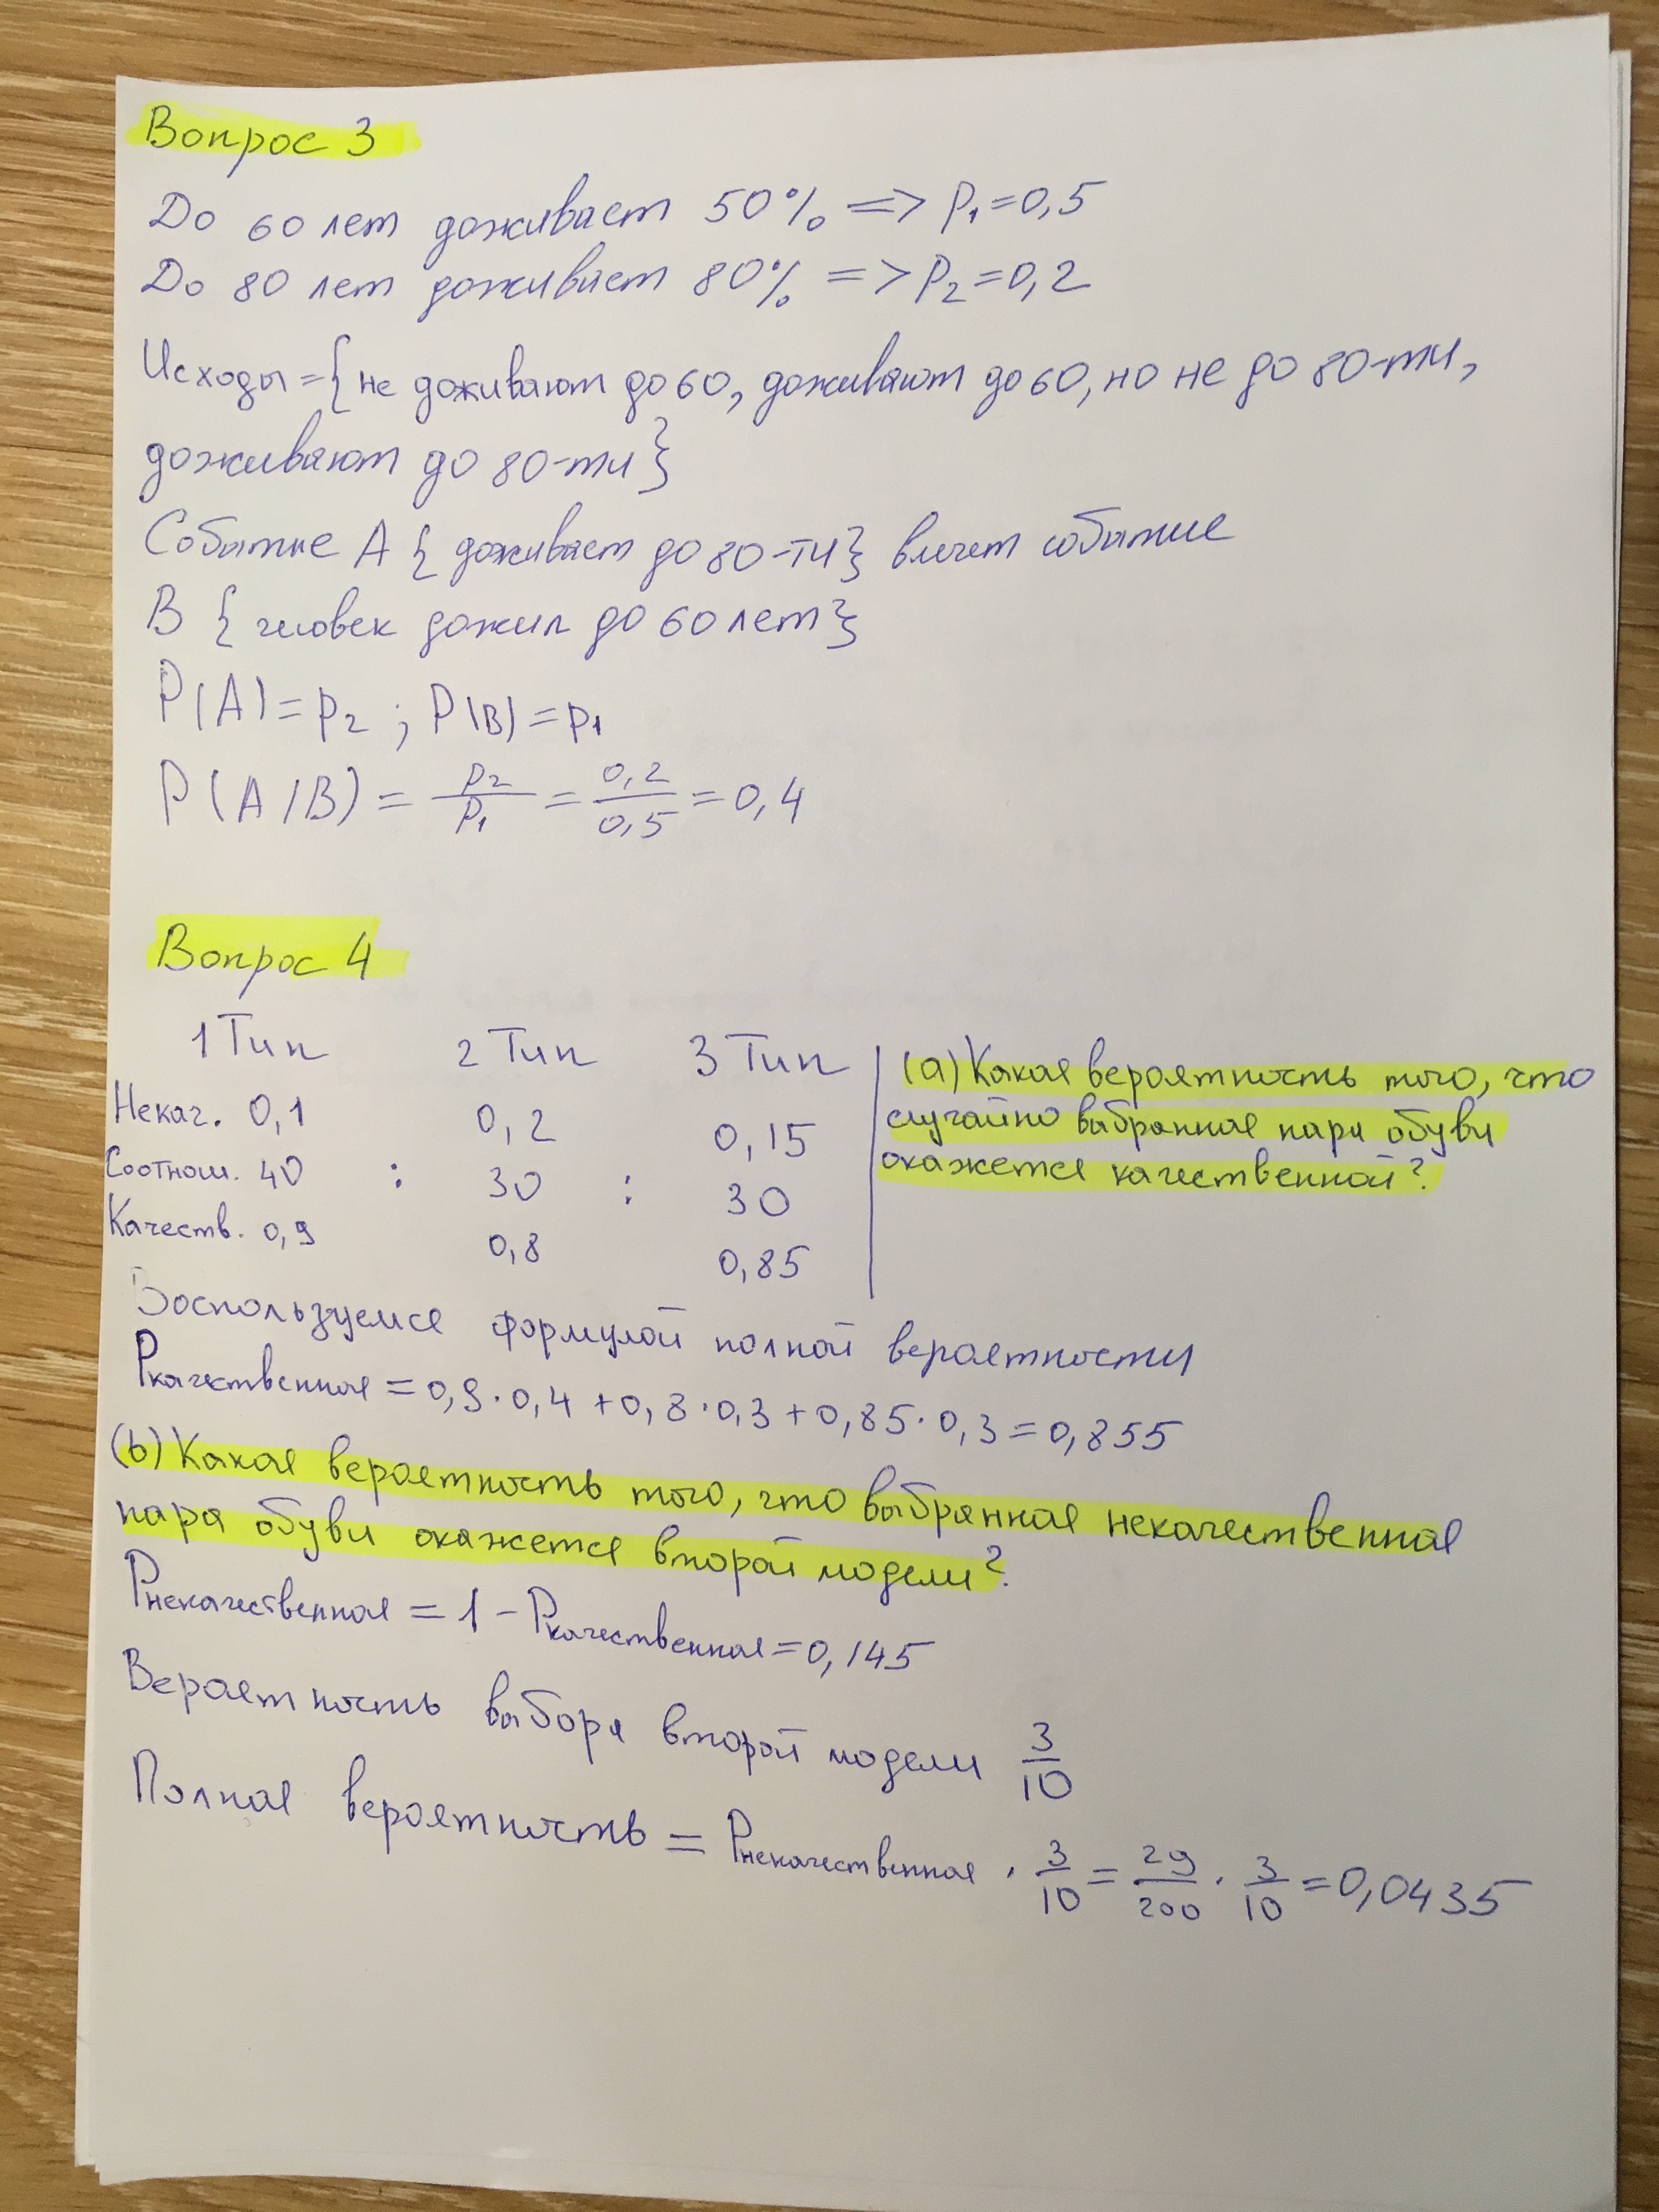 Вопрос 3
До 60 лет доживает 50% => P₁=0,5
До 80 лет доживает 80% => P₂=0,2
Исходы={не доживают до 60, доживают до 60, но не до 80-ти,
доживают до 80-ти}
Событие A { доживает до 80-ти} влечет событие
B { человек дожил до 60 лет}
P(A)=p₂ ; P(B)=p₁
P(A/B) = p₂/p₁ = 0,2/0,5 = 0,4
Вопрос 4
1 Тип 2 Тип 3 Тип
Некач. 0,1 0,2 0,15
Соотнош. 40 : 30 : 30
Качеств. 0,9 0,8 0,85
(a) Какая вероятность того, что
случайно выбранная пара обуви
окажется качественной?
Воспользуемся формулой полной вероятности
Pкачественная = 0,9·0,4 + 0,8·0,3 + 0,85·0,3 = 0,855
(b) Какая вероятность того, что выбранная некачественная
пара обуви окажется второй модели?
Pнекачественная = 1 - Pкачественная = 0,145
Вероятность выбора второй модели 3/10
Полная вероятность = Pнекачественная · 3/10 = 29/200 · 3/10 = 0,0435